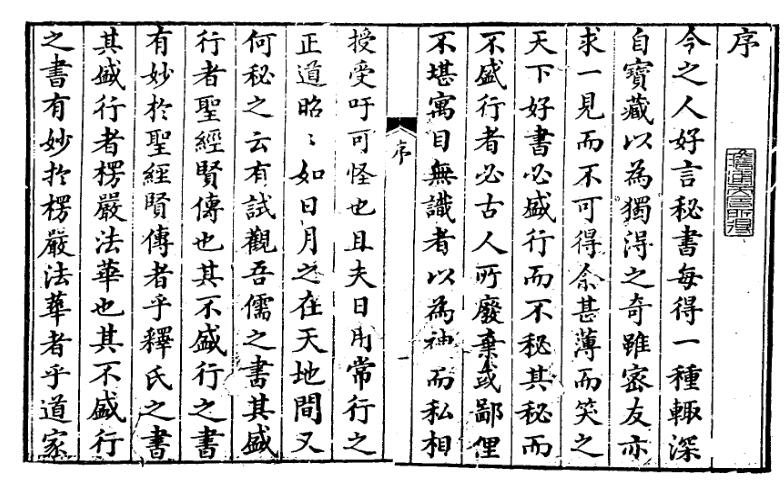 序
今之人好言秘書每得一種輙深
自寶藏以為獨得之奇雖密友亦
求一見而不可得余甚薄而笑之
天下好書必盛行而不秘其秘而
不盛行者必古人所廢棄或鄙俚
不堪寓目無識者以為神而私相
序
一
授受吁可怪也且夫日用常行之
正道昭〻如日月之在天地間又
何秘之云有試觀吾儒之書其盛
行者聖經賢傳也其不盛行之書
有妙於聖經賢傳者乎釋氏之書
其盛行者楞嚴法華也其不盛行
之書有妙於楞嚴法華者乎道家